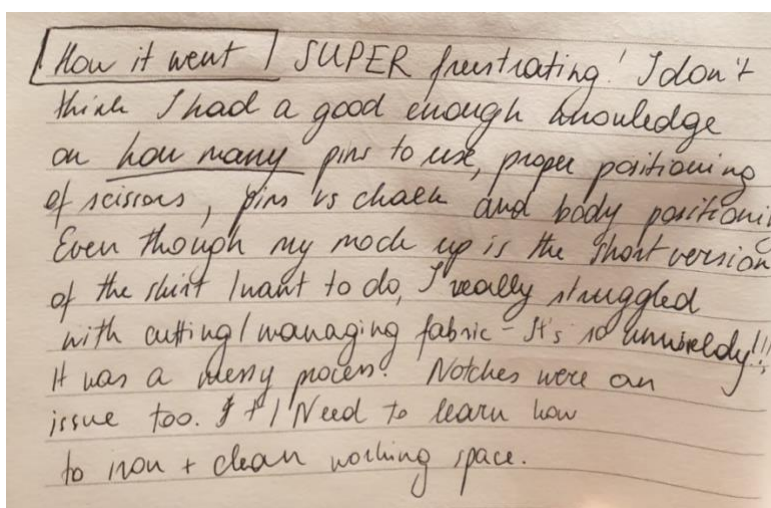 How it went SUPER frustrating! I don't
think I had a good enough knowledge
on how many pins to use, proper positioning
of scissors, pins vs chalk and body positioni
Even though my mock up is the short version
of the skirt I want to do, I really struggled
with cutting/managing fabric - It's so unwieldy!!!
It was a messy process. Notches were an
issue too. I Need to learn how
to iron + clean working space.